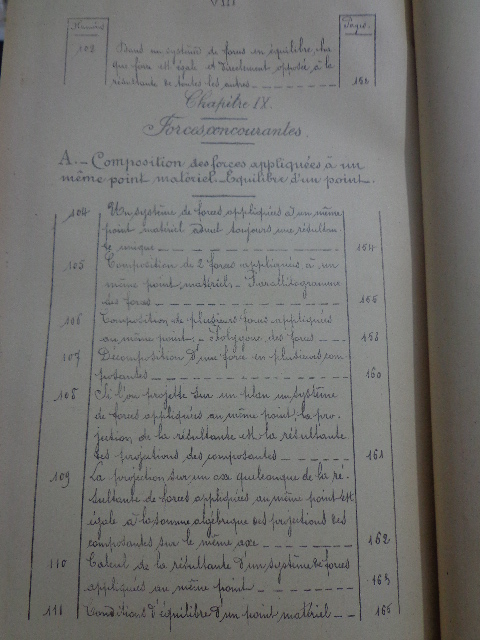 VIII
Numéros
Pages
103 Dans un système de forces en équilibre, cha
que force est égale et directement opposée à la
résultante de toutes les autres 152
Chapitre IX.
Forces concourantes.
A. - Composition des forces appliquées à un
même point matériel - Equilibre d'un point.
104 Un système de forces appliquées à un même
point matériel admet toujours une résultan
te unique 154
105 Composition de 2 forces appliquées à un
même point matériel - Parallélogramme
des forces 155
106 Composition de plusieurs forces appliquées
au même point. - Polygone des forces 158
107 Décomposition d'une force en plusieurs com
posantes 160
108 Si l'on projette sur un plan un système
de forces appliquées au même point, la pro-
jection de la résultante est la résultante
des projections des composantes 161
109 La projection sur un axe quelconque de la ré-
sultante de forces appliquées au même point est
égale à la somme algébrique des projections des
composantes sur le même axe 162
110 Calcul de la résultante d'un système de forces
appliquées au même point 163
111 Conditions d'équilibre d'un point matériel 165